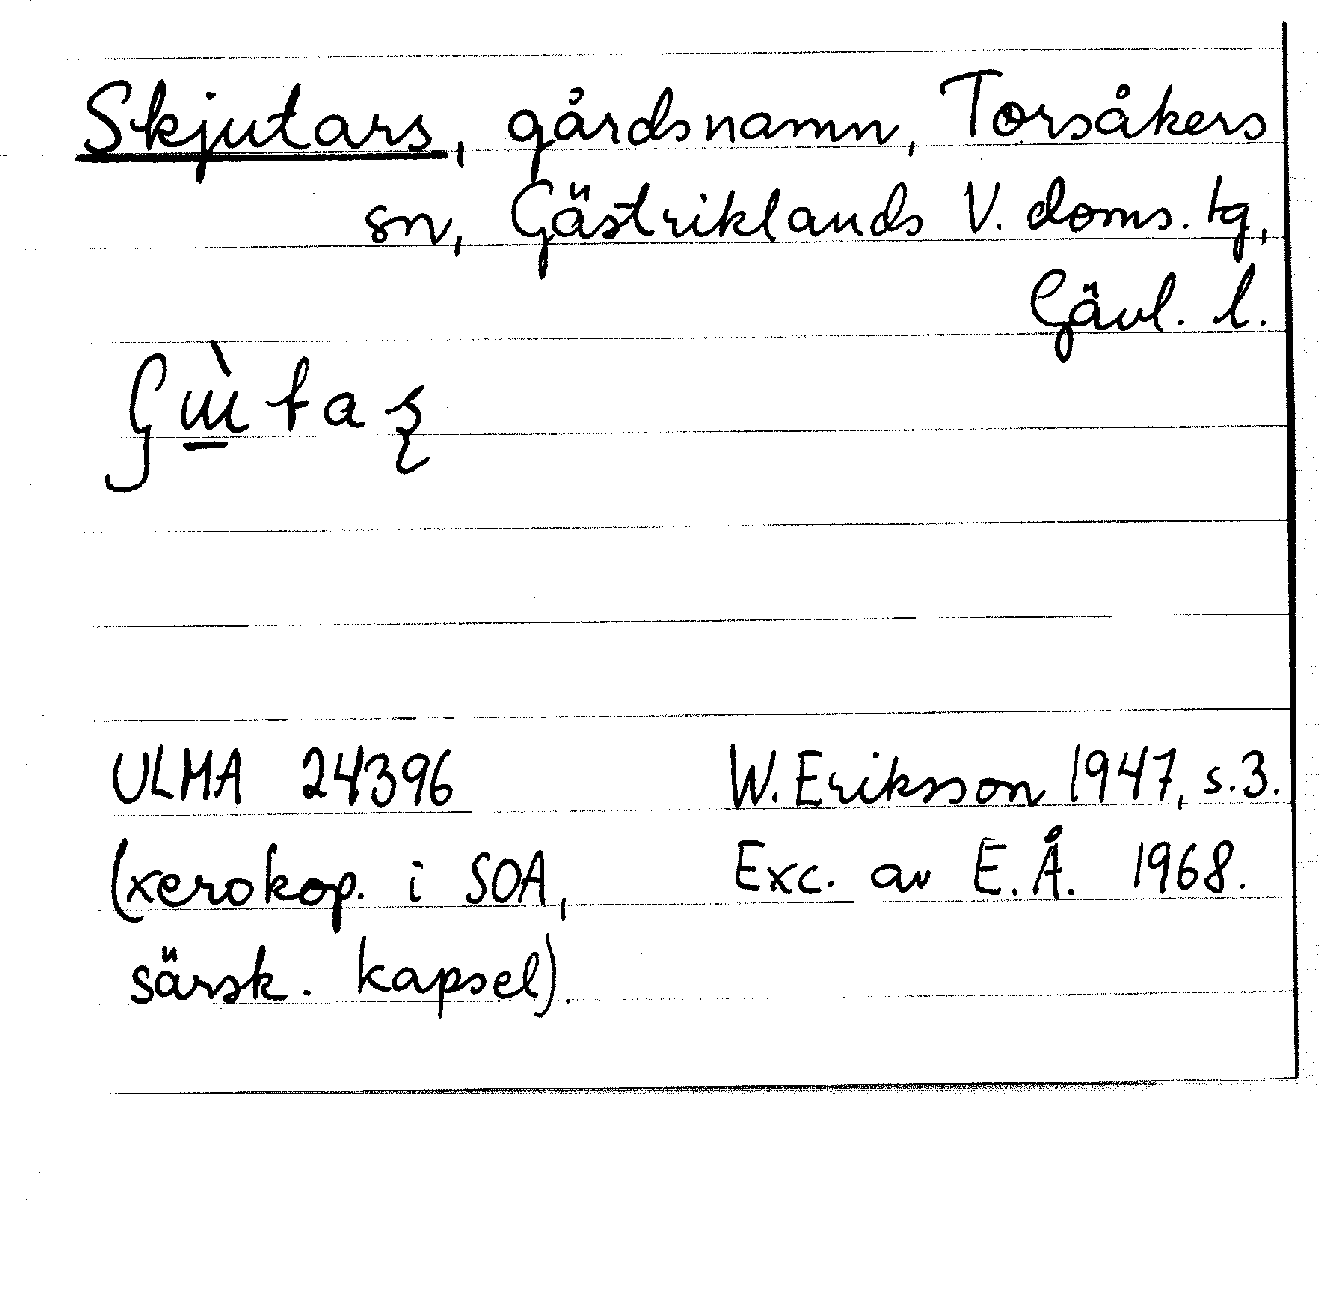 Skjutars, gårdsnamn, Torsåkers
sn, Gästriklands V. doms. tg,
Gävl. l.
ULMA 24396 W. Eriksson 1947, s.3.
(xerokop. i SOA, Exc. av E.Å. 1968.
särsk. kapsel).